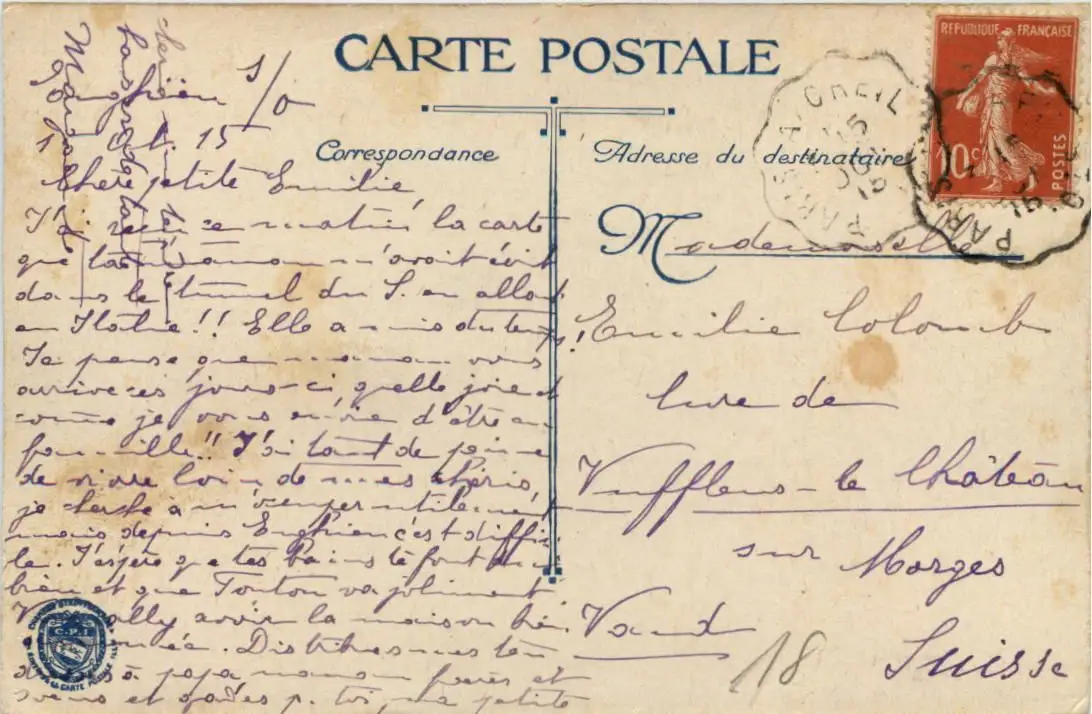 CARTE POSTALE
Correspondance
Adresse du destinataire
RÉPUBLIQUE FRANÇAISE
10c
POSTES
PARIS A CREIL
Enghien 1/0
1 Oct. 15
Chère petite Emilie
J'ai reçu ce matin la carte
que ta maman m'avait écrit
dans le tunnel du S. en allant
en Italie!! Elle a mis du temps!
Je pense que maman vous
arrive ces jours-ci, quelle joie et
comme je vous envie d'être en
famille!! J'ai tant de peine
de vivre loin de mes chéris,
je cherche à m'occuper utilement
mais depuis Enghien c'est diffici-
le. J'espère que tes bains te font du
bien et que Tonton va joliment
avoir la maison bien
Distribues mes ten
à papa maman frères et
soeurs et gardes p. toi, ma petite
chérie
Mademoiselle
Emilie Colomb
Cure de
Vufflens-le Château
sur Morges
Vaud
Suisse
18
C.P.I